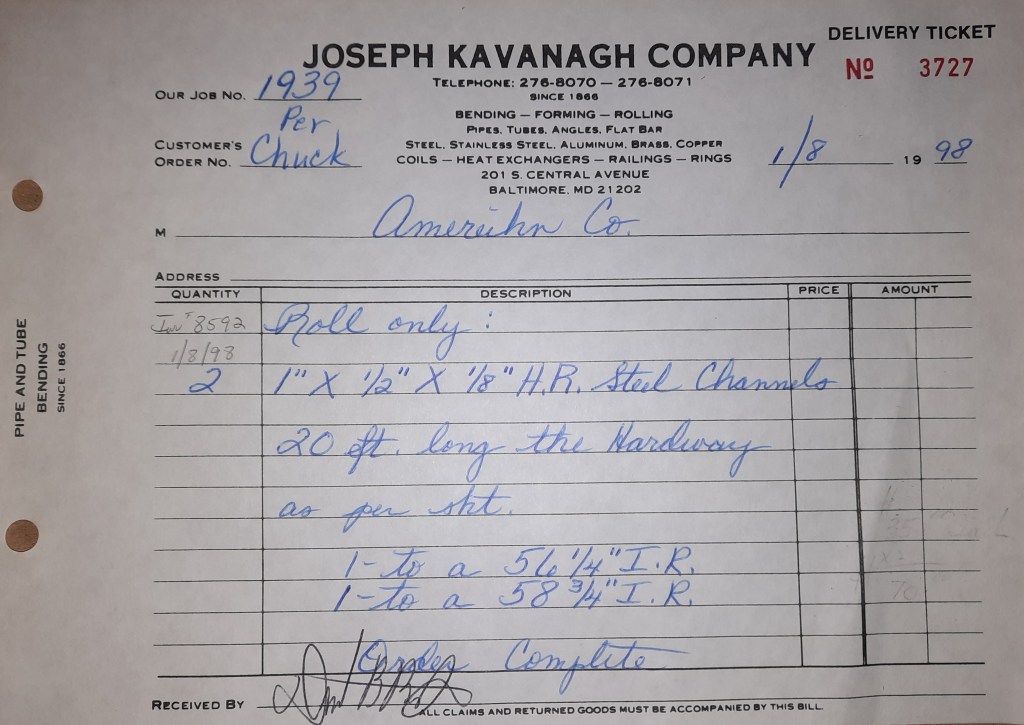 DELIVERY TICKET
JOSEPH KAVANAGH COMPANY
Nº 3727
TELEPHONE: 276-8070 — 276-8071
SINCE 1866
OUR JOB NO. 1939
BENDING — FORMING — ROLLING
PIPES, TUBES, ANGLES, FLAT BAR
STEEL, STAINLESS STEEL, ALUMINUM, BRASS, COPPER
COILS — HEAT EXCHANGERS — RAILINGS — RINGS
201 S. CENTRAL AVENUE
BALTIMORE, MD 21202
Per
CUSTOMER'S
ORDER NO. Chuck
1/8 19 98
M Co.
ADDRESS
QUANTITY DESCRIPTION PRICE AMOUNT
8592 Roll only :
1/8/98
2 1" X 1/2" X 1/8" H.R. Steel Channels
20 ft. long the Hardway
as per skt.
1-to a 56 1/4" I.R.
1-to a 58 3/4" I.R.
70
Order Complete
RECEIVED BY
ALL CLAIMS AND RETURNED GOODS MUST BE ACCOMPANIED BY THIS BILL.
PIPE AND TUBE
BENDING
SINCE 1866